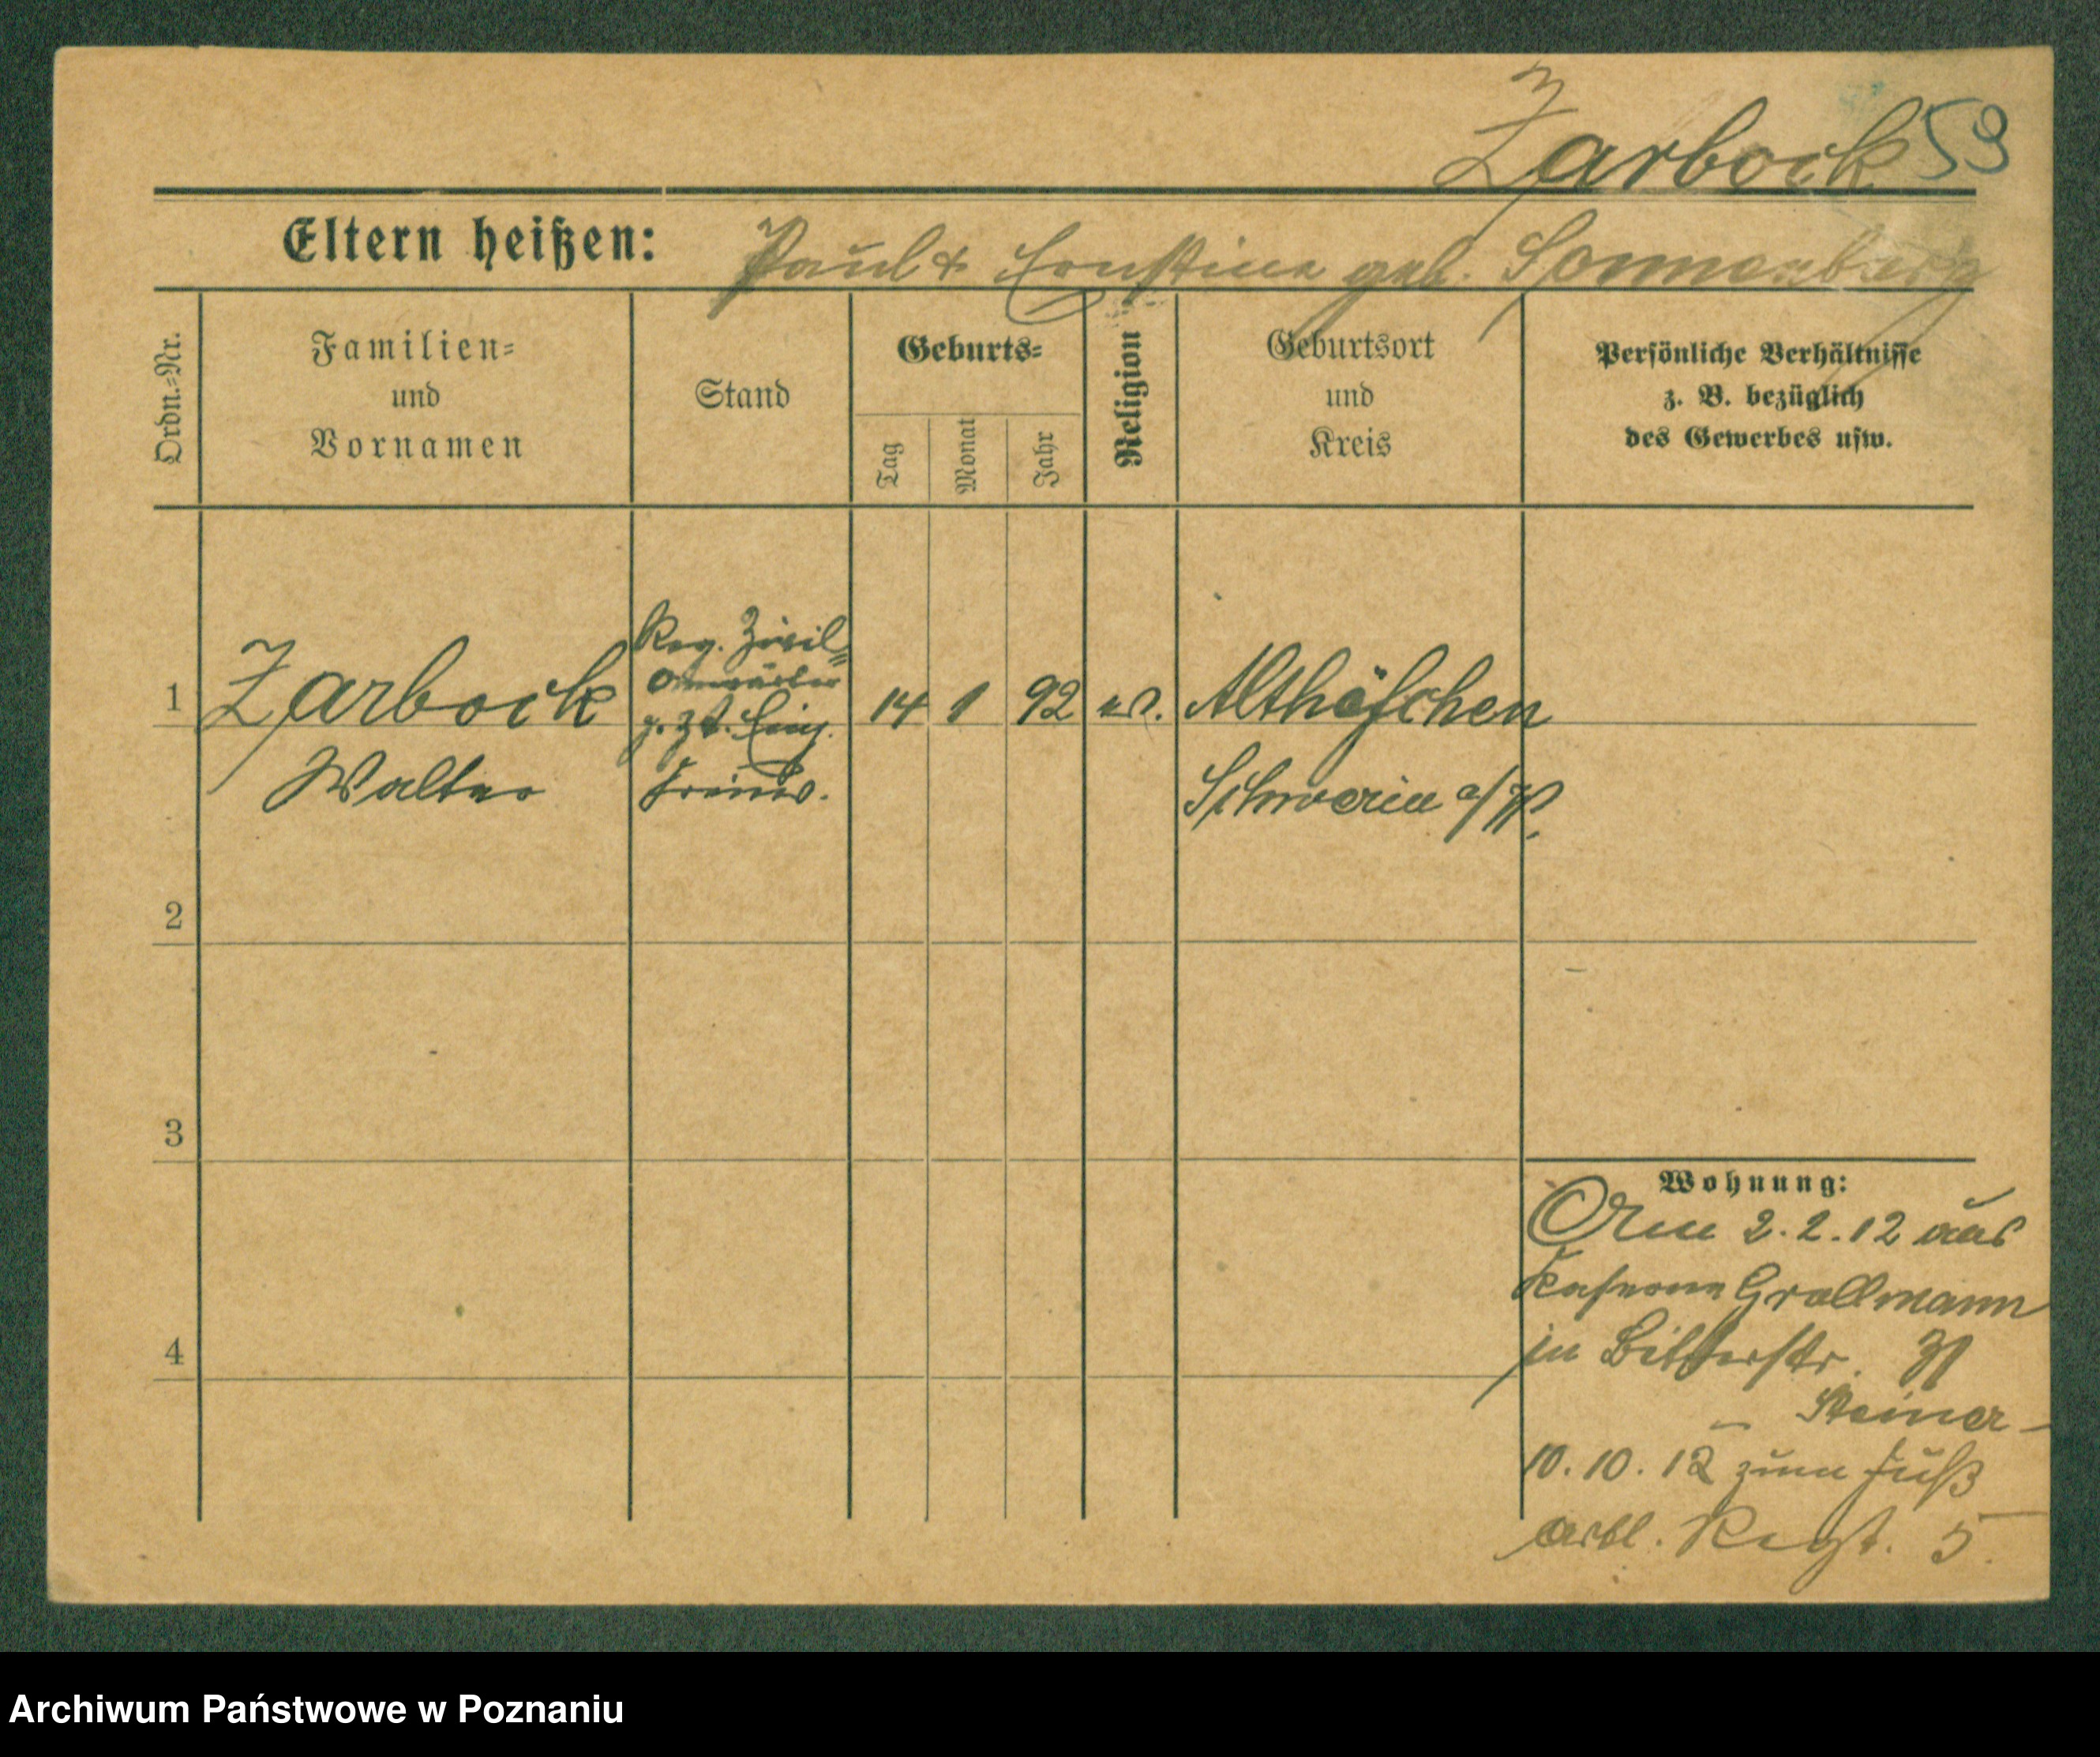 Zarbock 59
Eltern heißen: Paul & Ernstine geb. Sonnenburg
Ordn.-Nr.
Familien-
und
Vornamen
Stand
Geburts-
Tag
Monat
Jahr
Religion
Geburtsort
und
Kreis
Persönliche Verhältnisse
z. B. bezüglich
des Gewerbes usw.
1
Zarbock
Walter
Reg. Zivil-
anwärter
z. Zt. Einj.
Freiw.
14 1 92 ev. Althöfchen
Schwerin a/W.
2
3
4
Wohnung:
2.2.12 aus
Kaserne Grollmann
in Bitterstr. 31
– Steiner –
10.10.12 zum Fuß
artl. Regt. 5.
Archiwum Państwowe w Poznaniu